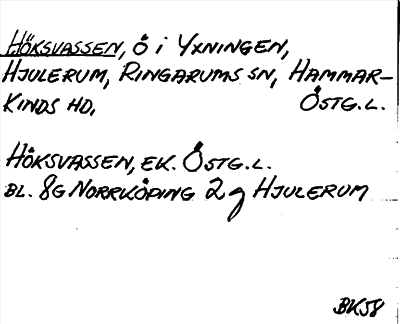 Höksvassen, ö i Yxningen,
Hjulerum, Ringarums sn, Hammar-
kinds hd, Östg.l.
Höksvassen, ek. Östg.l.
bl. 8G Norrköping 2g Hjulerum
BK58